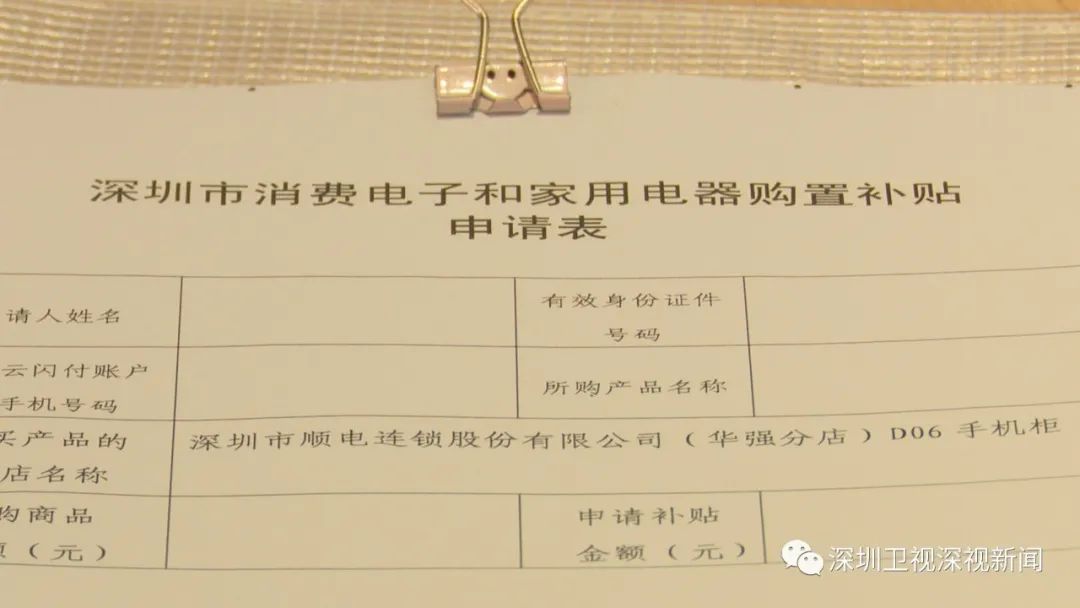 深圳市消费电子和家用电器购置补贴
申请表
请人姓名
有效身份证件
号码
云闪付账户
手机号码
所购产品名称
买产品的
店名称
深圳市顺电连锁股份有限公司（华强分店）D06 手机柜
购商品
额（元）
申请补贴
金额（元）
深圳卫视深视新闻